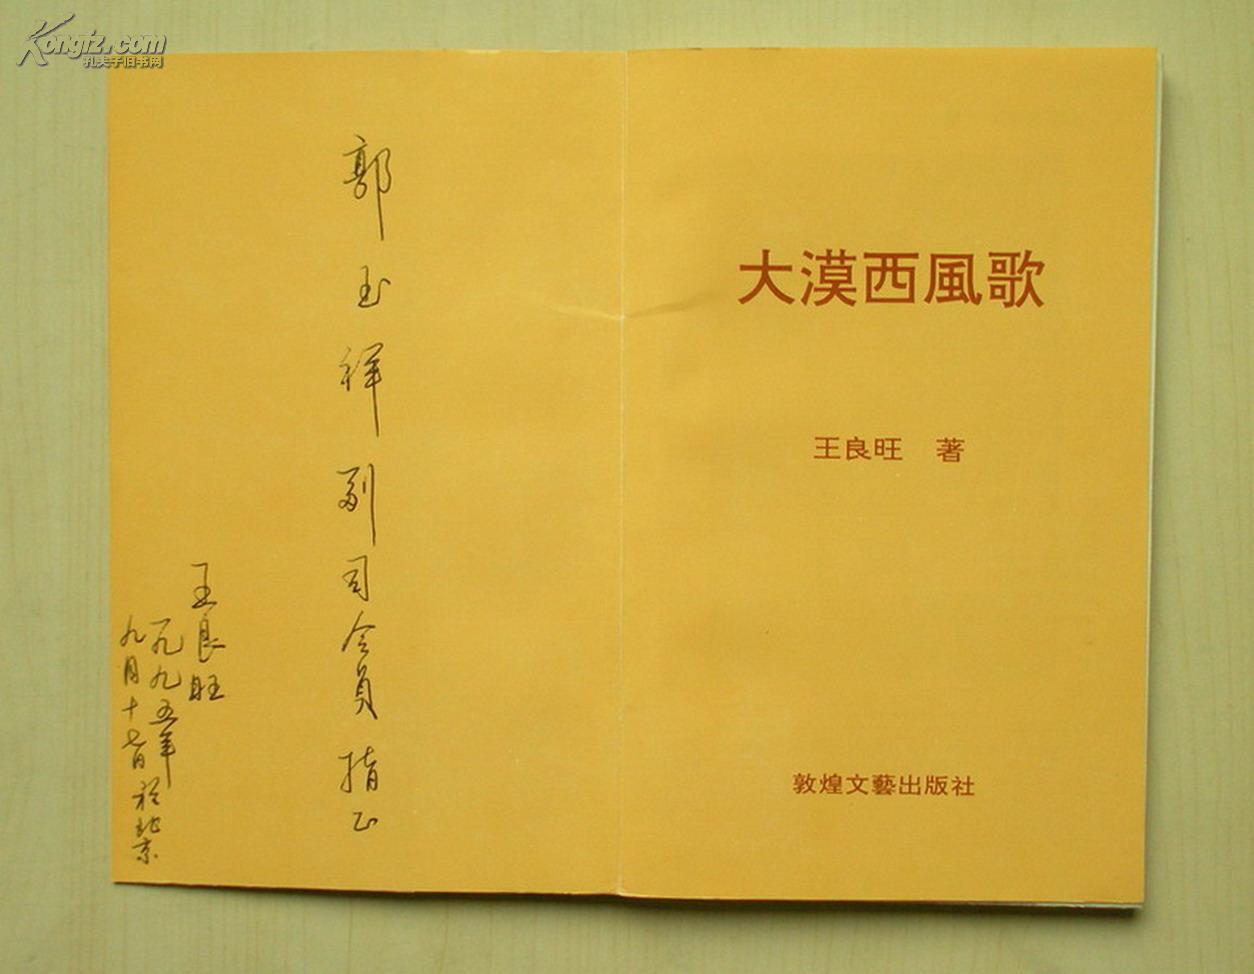 Kongfz.com
孔夫子旧书网
郭玉祥副司令员指正
王良旺
一九九五年
九月十七日於北京
大漠西風歌
王良旺 著
敦煌文藝出版社